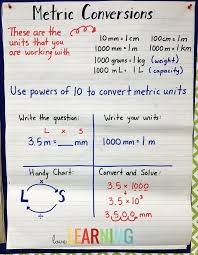 Metric Conversions
These are the
units that you
are working with
10mm = 1cm
100cm = 1m
1000 mm = 1m
1000 m = 1 km
1000 grams = 1 kg (weight)
1000 mL = 1 L (capacity)
Use powers of 10 to convert metric units
Write the question:
L x S
3.5 m = ___ mm
Write your units:
1000 mm = 1m
Handy Chart:
x
L S
÷
Convert and Solve:
3.5 x 1000
3.5 x 10³
3,500 mm
love, LEARNING